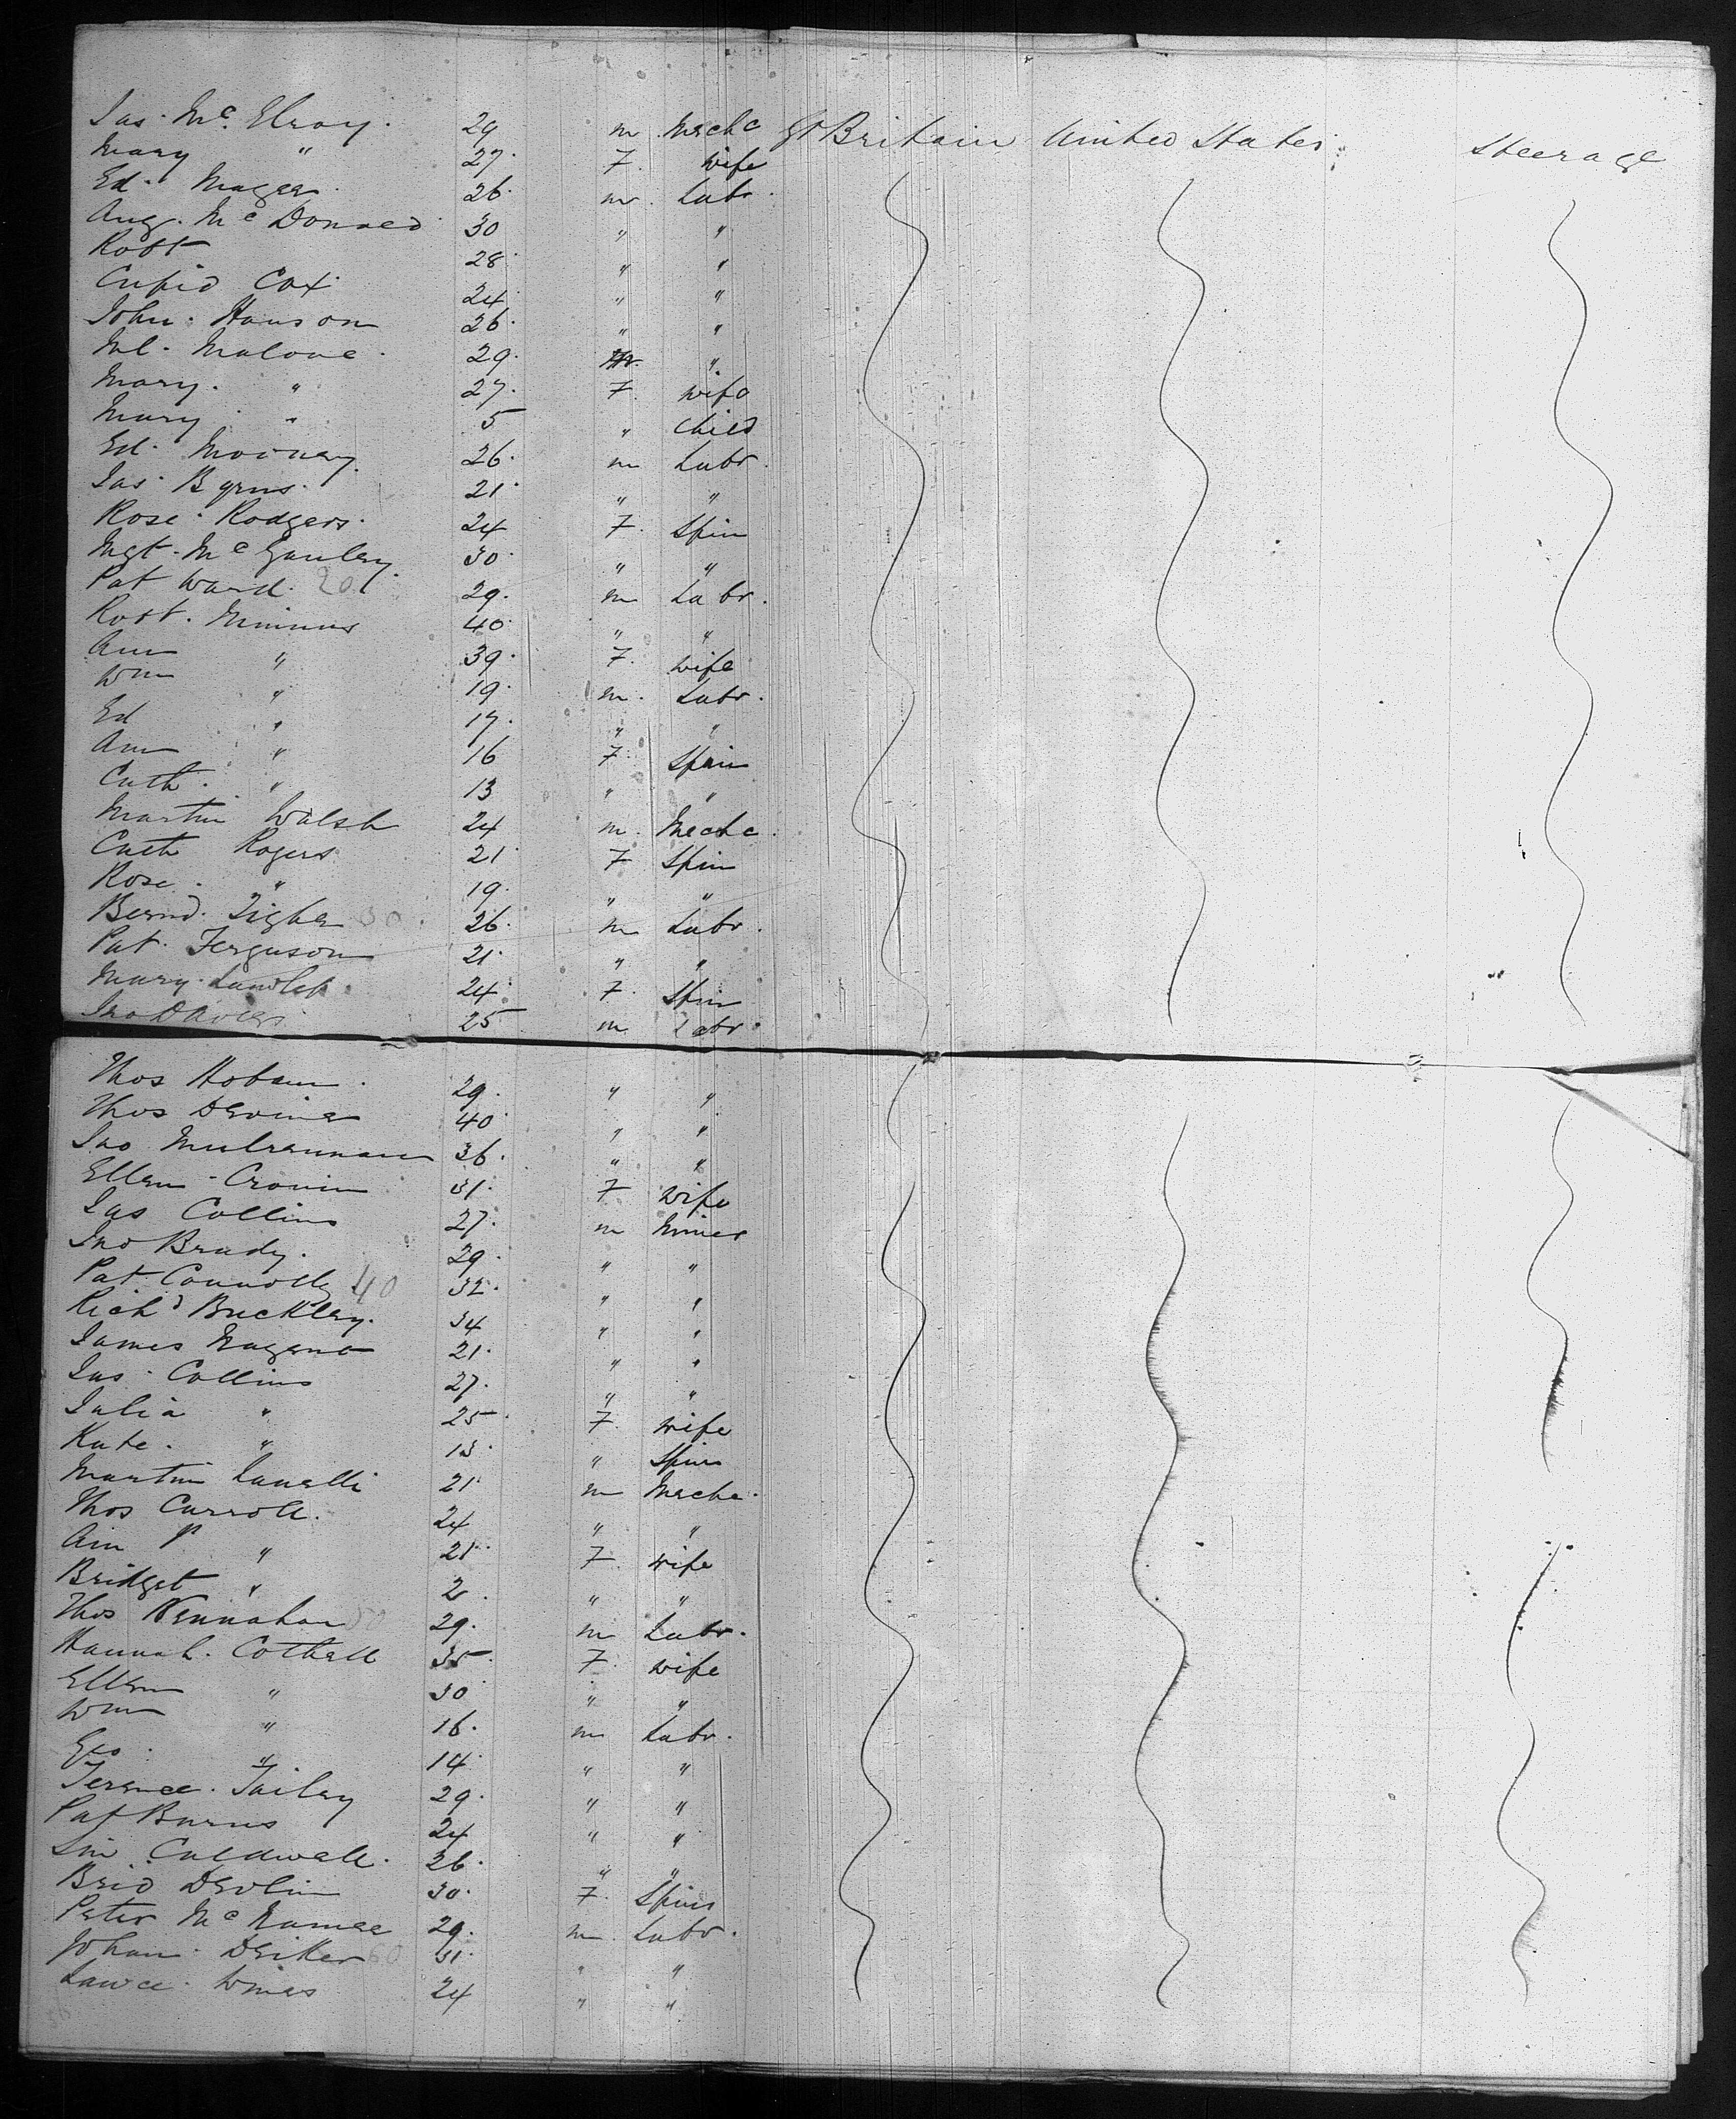 Jas. Mc. Elroy. 29 m Mechc Gt Britain United States Steerage
Mary " 27. F. wife
Ed. Magee 26. m. Labr
Aug. Mc Donned 30 " "
Robt 28 " "
Cupid Cox 24 " "
John. Hanson 26. " "
Ml. Malone. 29. m. "
Mary. " 27. F. wife
Mary " 5 " Child
Ed. Mooney 26. m Labr.
Jas. Byrns. 21 " "
Rose. Rodgers. 24 F. Spin
Mgt. Mc Ganley. 30 " "
Pat Ward. 20 29. m Labr.
Robt. 40 " "
Ann " 39. F. wife
Wm " 19. m. Labr.
Ed " 17. " "
Ann " 16 F. Spin
Cath. " 13 " "
Martin Walsh 24 m. Mechc.
Cath Rogers 21 F Spin
Rose. " 19. " "
Bernd. Tighe 30 26. m Labr.
Pat. Ferguson 21. " "
Mary 24. F. Spin
Jno Davies 25 m Labr.
Thos Hoban. 29. " "
Thos Devine 40 " "
Jno Mulrennan 36. " "
Ellen Cronin 31. F wife
Jas Collins 27. m Miner
Jno Brady. 29. " "
Pat Connolly 40 32. " "
Richd Buckley. 34 " "
James Nugent 21. " "
Jas. Collins 27. " "
Julia " 25. F. wife
Kate. " 13. " Spin
Martin 21 m Mechc.
Thos Carroll. 24 " "
Ann P " 21 F. wife
Bridget " 2. " "
Thos 50 29. m Labr.
Hannah. Cothell 35. F. wife
Ellen " 30 " "
Wm " 16. m Labr.
Geo. " 14. " "
Terence. 29. " "
Pat Burns 24 " "
Caldwell. 26. " "
Brid Devlin 30. F. Spin
Peter Mc Namee 29. m. Labr.
Johan. 60 31. " "
Lawce. 24 " "